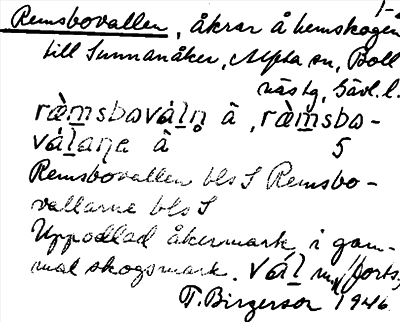 1-2
Remsbovallen, åkrar å hemskogen
till Sunnanåker, Alfta sn, Boll-
näs tg, Gävl. l.
ræ̀msbovál̠n̥ å, ræ̀msbo-
vál̠ana å 5
Remsbovallen bls S Remsbo-
vallarne bls S
Uppodlad åkermark i gam-
mal skogsmark. vál̠ m. (forts.)
T. Birgerson 1946